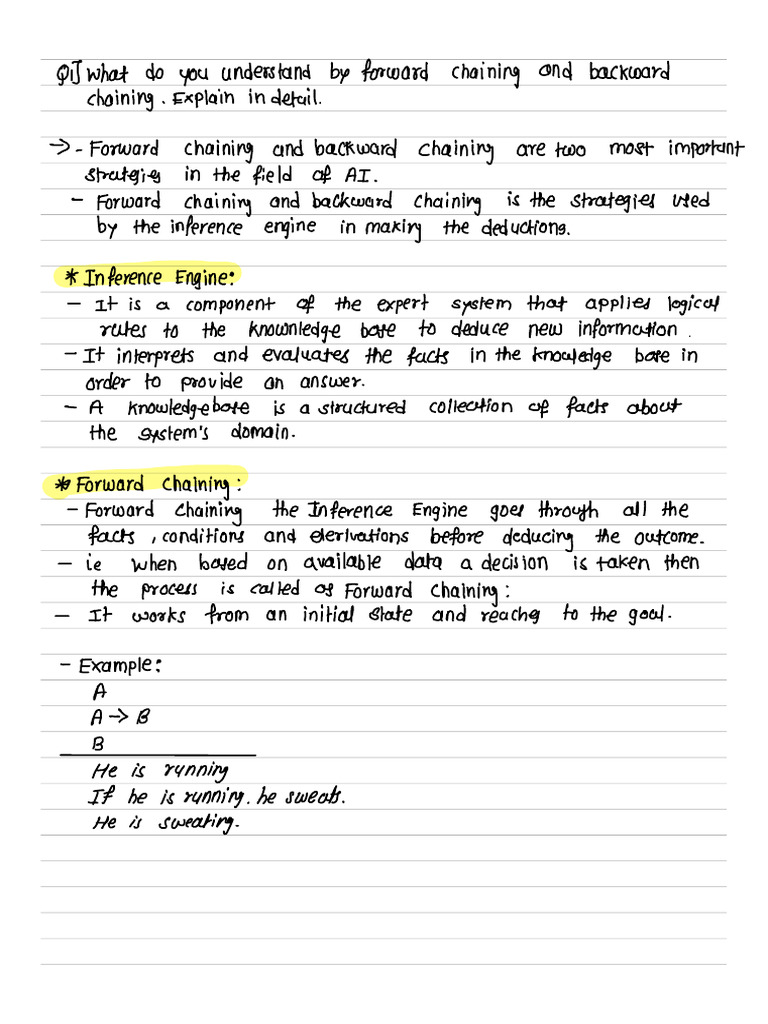 Q1] What do you understand by forward chaining and backward
chaining. Explain in detail.
-> - Forward chaining and backward chaining are two most important
strategies in the field of AI.
- Forward chaining and backward chaining is the strategies used
by the inference engine in making the deductions.
* Inference Engine:
- It is a component of the expert system that applies logical
rules to the knownledge base to deduce new information.
- It interprets and evaluates the facts in the knowledge base in
order to provide an answer.
- A knowledgebase is a structured collection of facts about
the system's domain.
* Forward Chaining:
- Forward Chaining the Inference Engine goes through all the
facts, conditions and derivations before deducing the outcome.
- ie when based on available data a decision is taken then
the process is called as Forward Chaining:
- It works from an initial state and reaches to the goal.
- Example:
A
A -> B
B
He is running
If he is running, he sweats.
He is sweating.